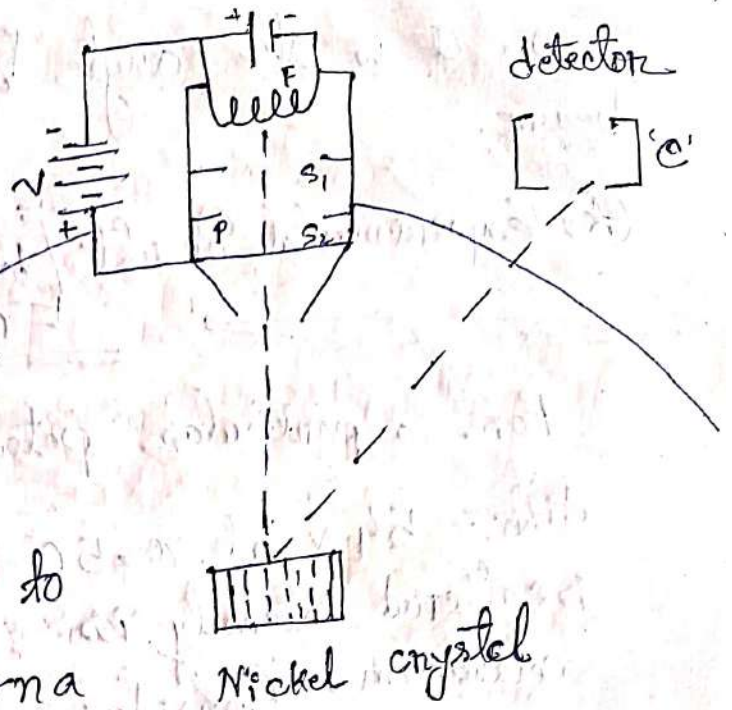 + -
detector
F
-
'C'
V
S₁
+
P
S₂
to
na
Nickel crystal